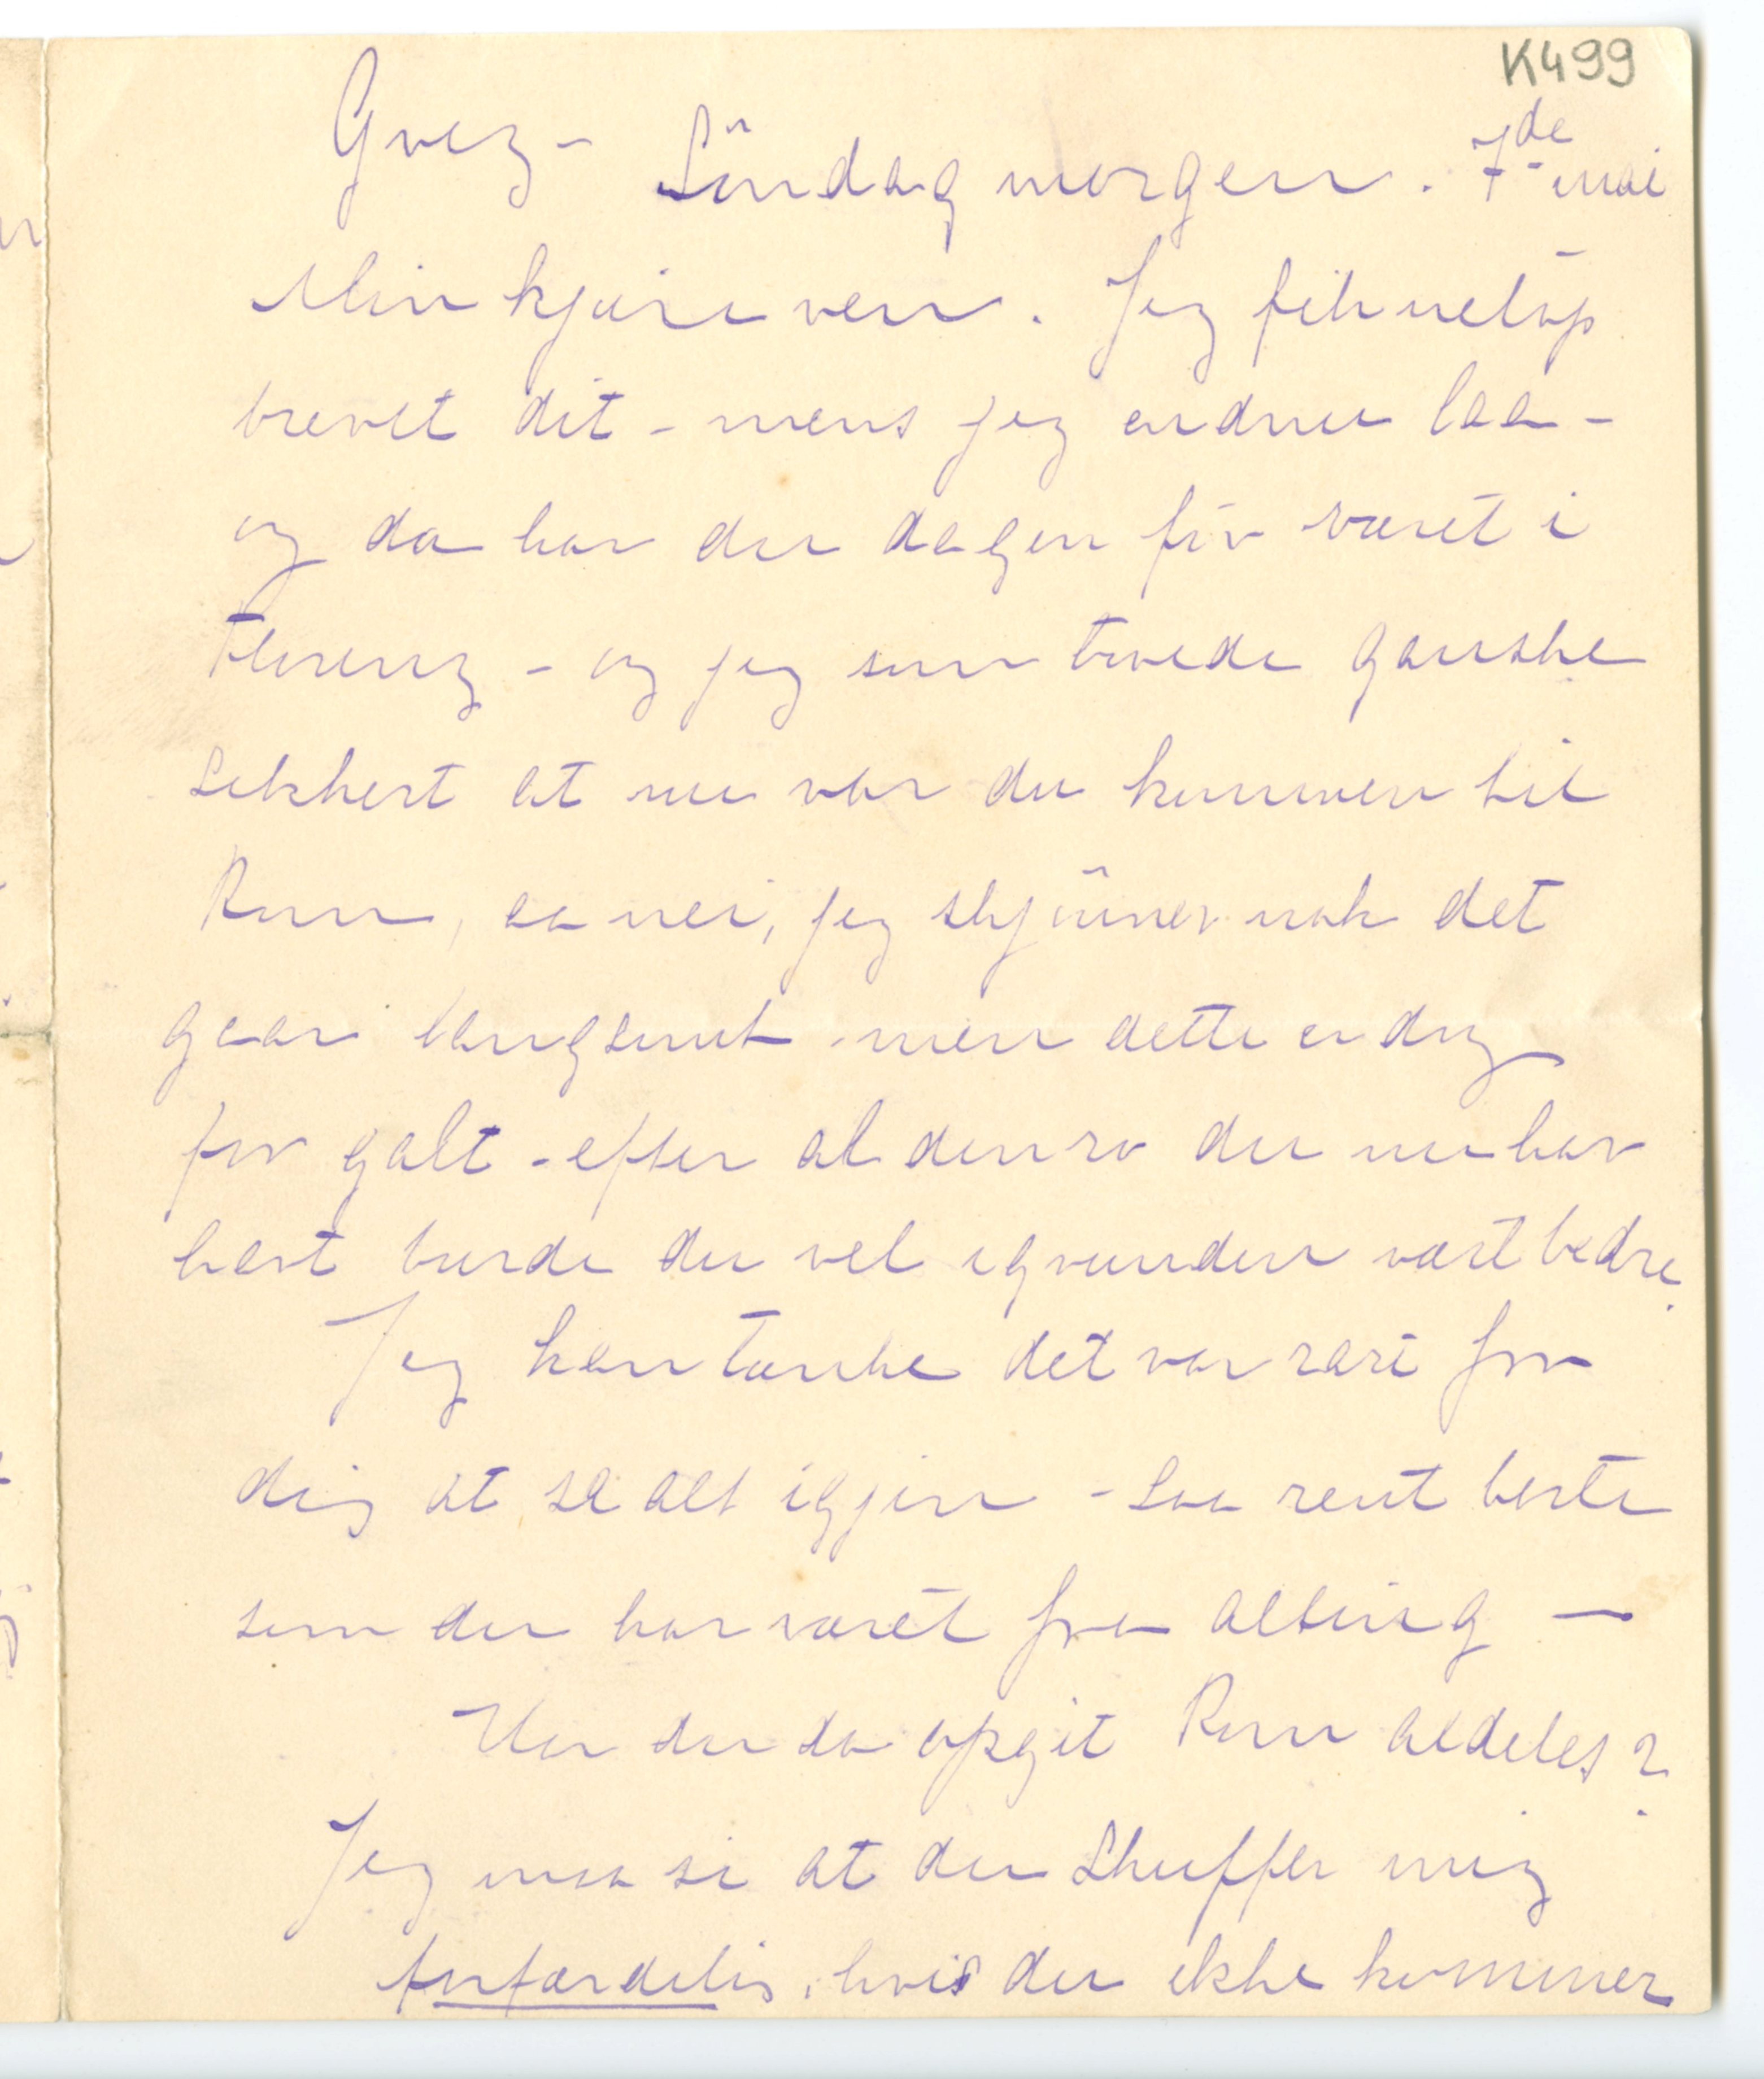 K499
Grez - Söndag morgen. 7de mai
Min kjære ven. Jeg fik netop
brevet dit - mens jeg endnu laa -
og da har du dagen för været i
Florenz - og jeg som troede ganske
sikkert at nu var du kommen til
Rom, aa nei, jeg skjönner nok det
gaar langsomt - men dette er dog
for galt - efter al den ro du nu har
havt burde du vel igrunden vært bedre.
Jeg kan tænke det var rart for
dig at se alt igjen - saa rent borte
som du har været fra alting -
Har du da opgit Rom aldeles?
Jeg maa si at du skuffer mig
forfærdelig, hvis du ikke kommer